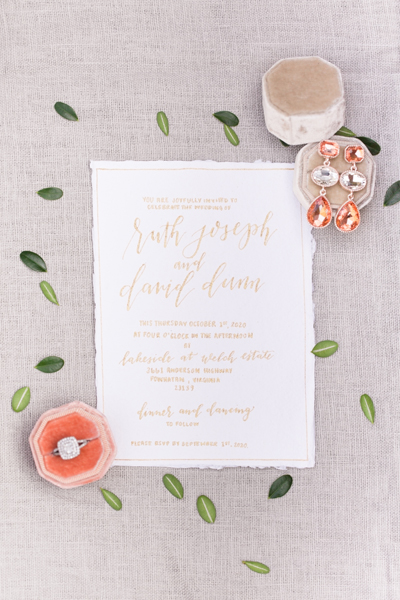 YOU ARE JOYFULLY INVITED TO
CELEBRATE THE WEDDING OF
ruth joseph
and
david dunn
THIS THURSDAY OCTOBER 1st, 2022
AT FOUR O'CLOCK IN THE AFTERNOON
lakeside at welch estate
7661 ANDERSON HIGHWAY
POWHATAN, VIRGINIA
23139
dinner and dancing
TO FOLLOW
PLEASE RSVP BY SEPTEMBER 1st, 2022